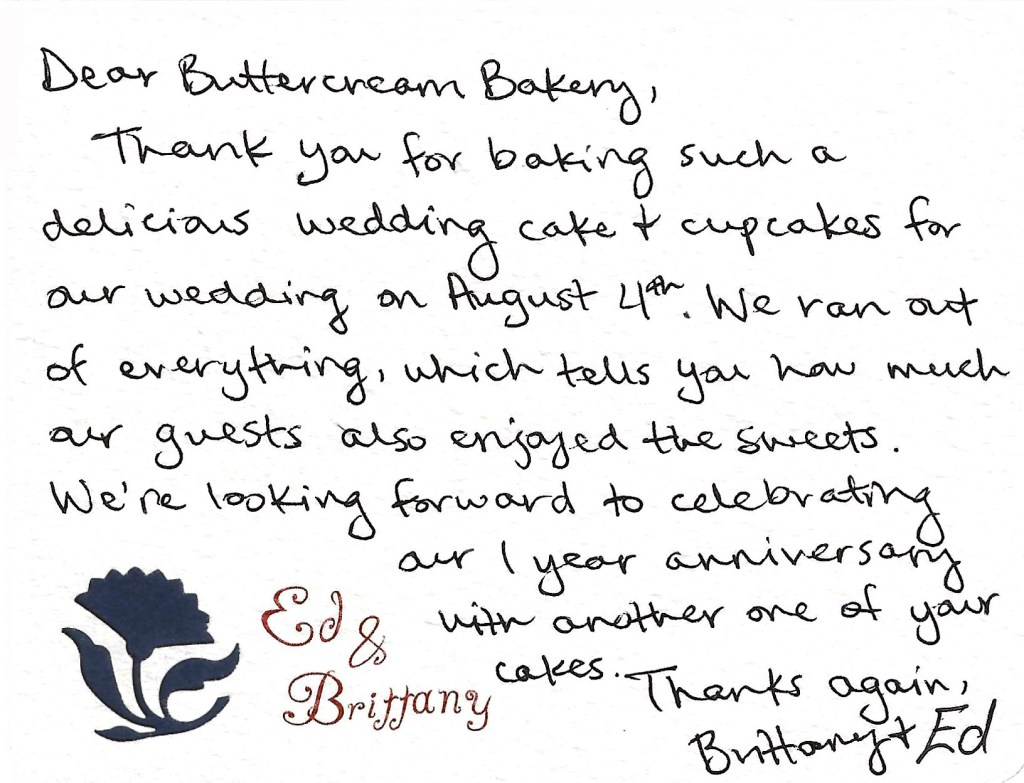 Dear Buttercream Bakery,
Thank you for baking such a
delicious wedding cake + cupcakes for
our wedding on August 4th. We ran out
of everything, which tells you how much
our guests also enjoyed the sweets.
We're looking forward to celebrating
our 1 year anniversary
with another one of your
cakes. Thanks again,
Brittany + Ed
Ed
&
Brittany